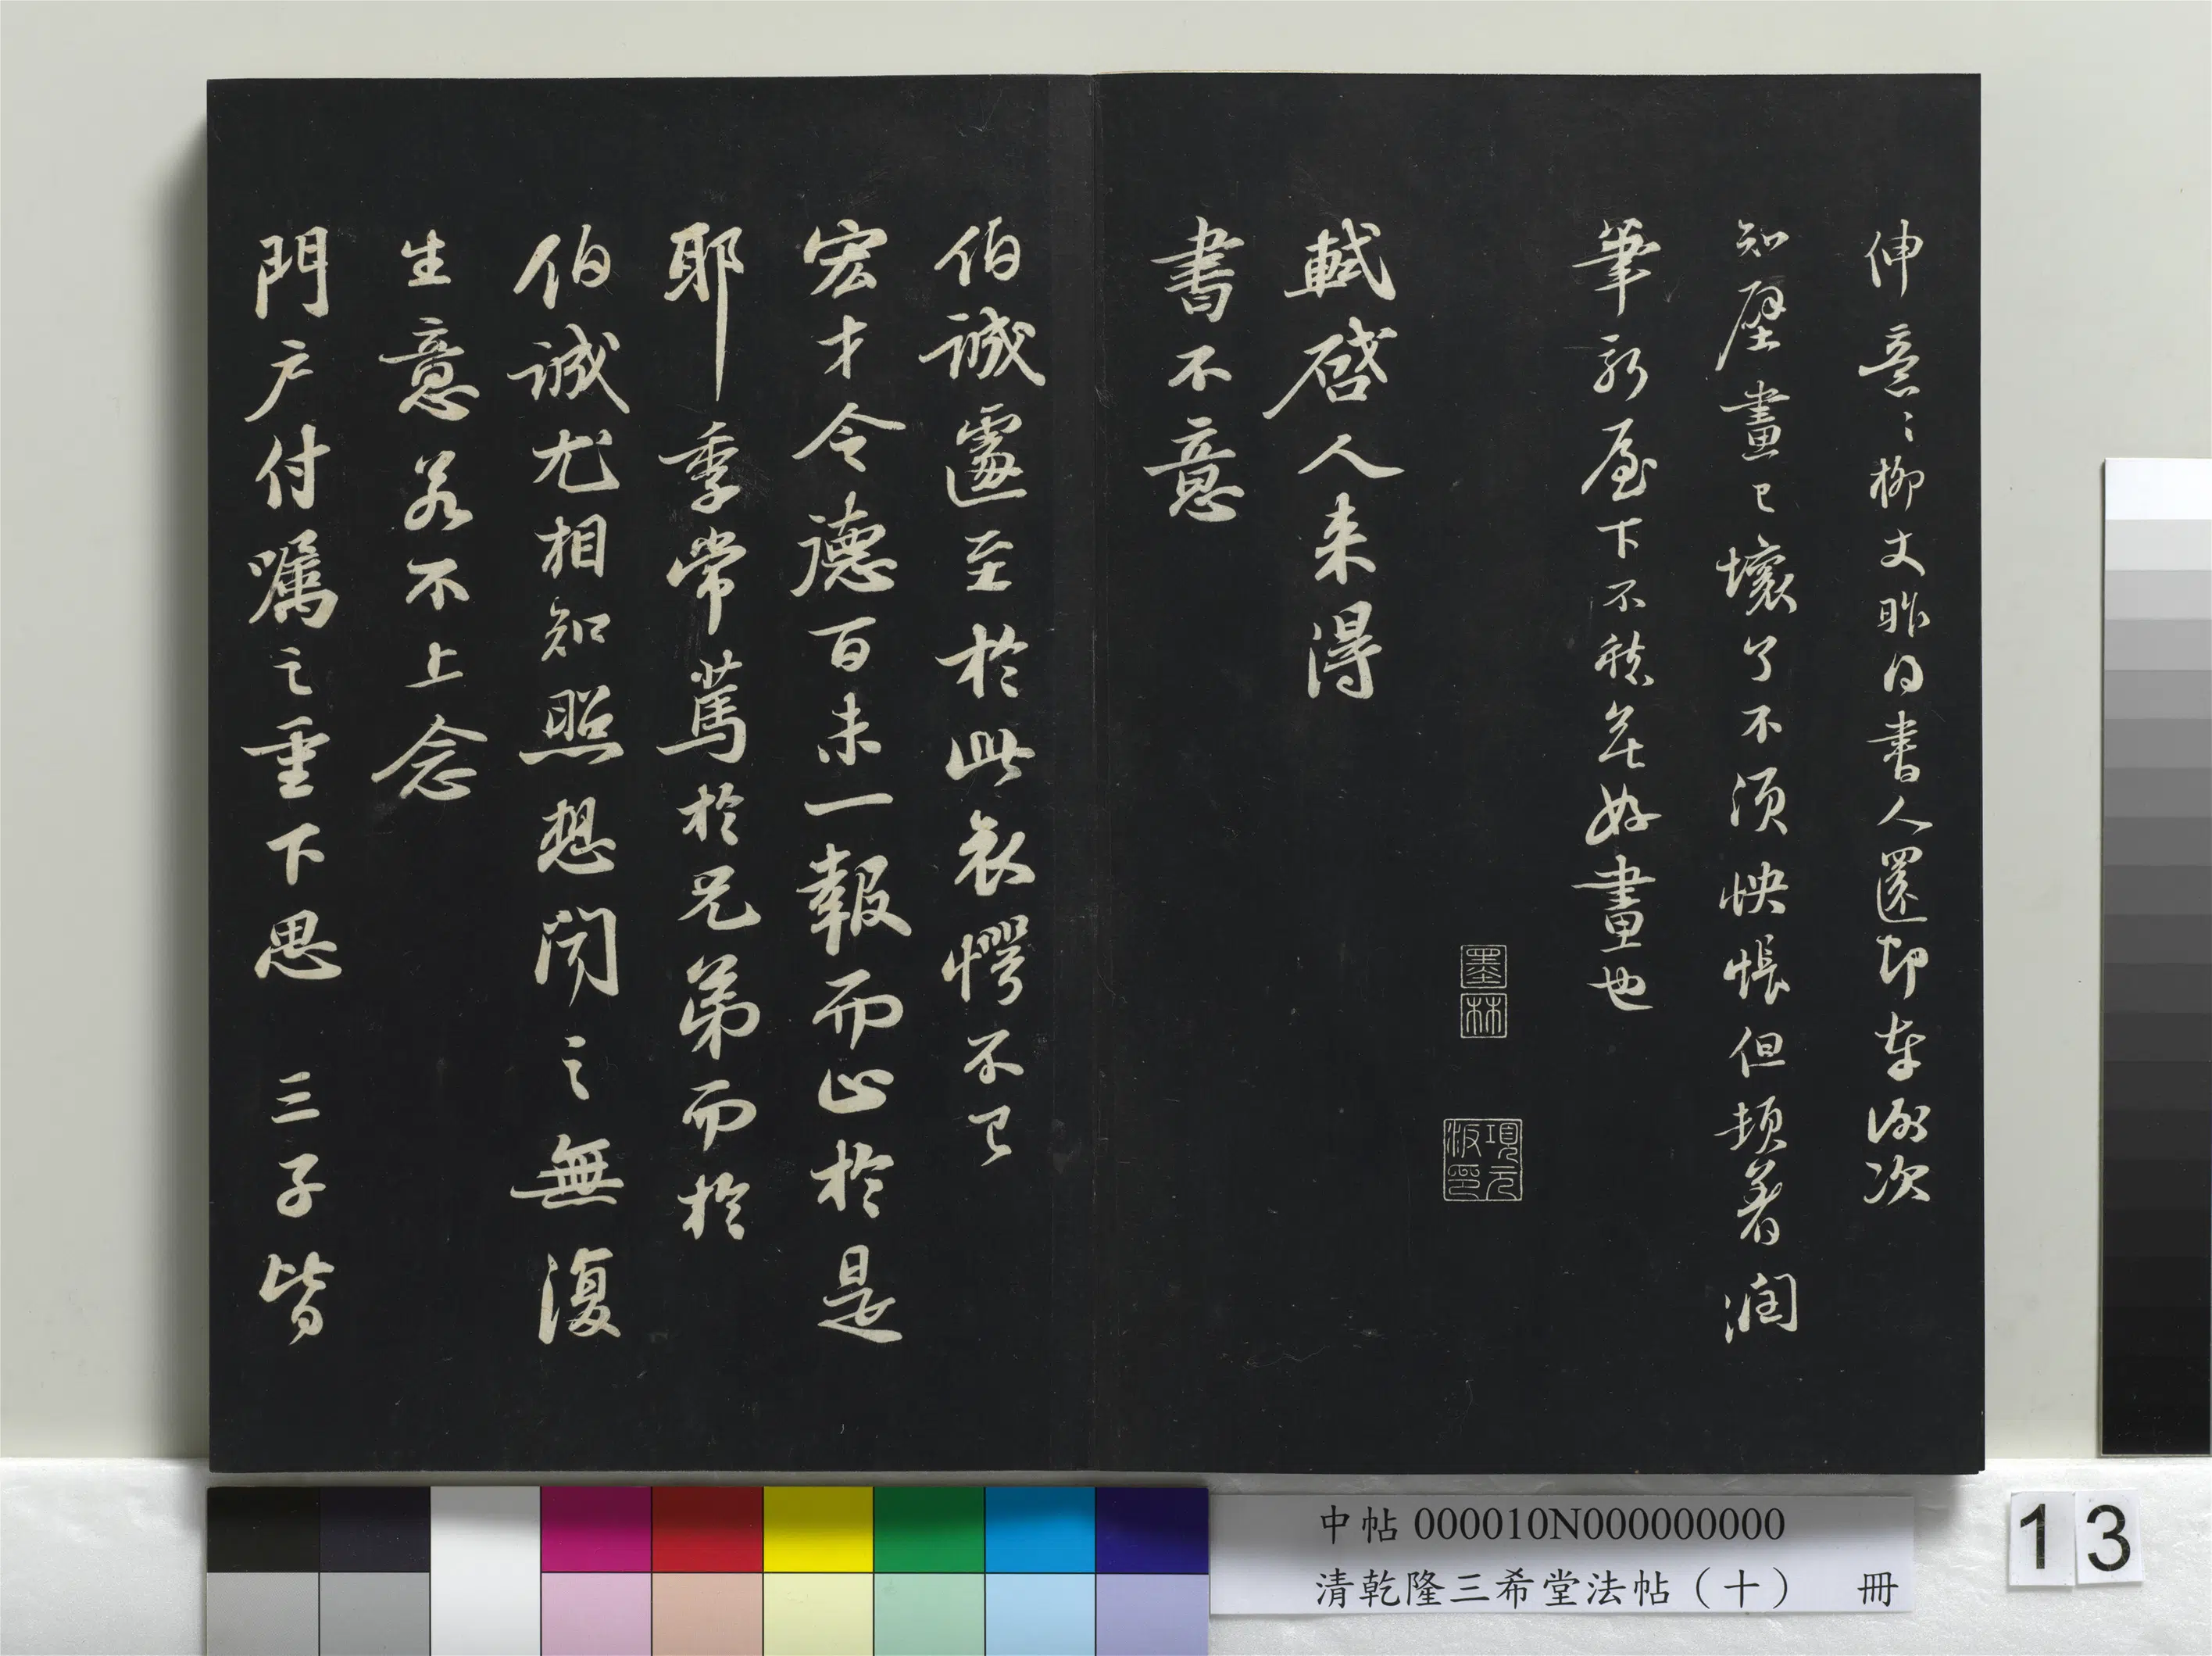 伸意〻柳丈昨得書人還即奉謝次
知壁畫已壞了不須怏悵但頓著潤
筆新屋下不愁無好畫也
墨林
項元汴印
軾啓人來得
書不意
伯誠遽至於此哀愕不已
宏才令德百未一報而止於是
耶季常篤於兄弟而於
伯誠尤相知照想聞之無復
生意若不上念
門户付囑之重下思三子皆
中帖 000010N000000000
清乾隆三希堂法帖（十） 冊
13